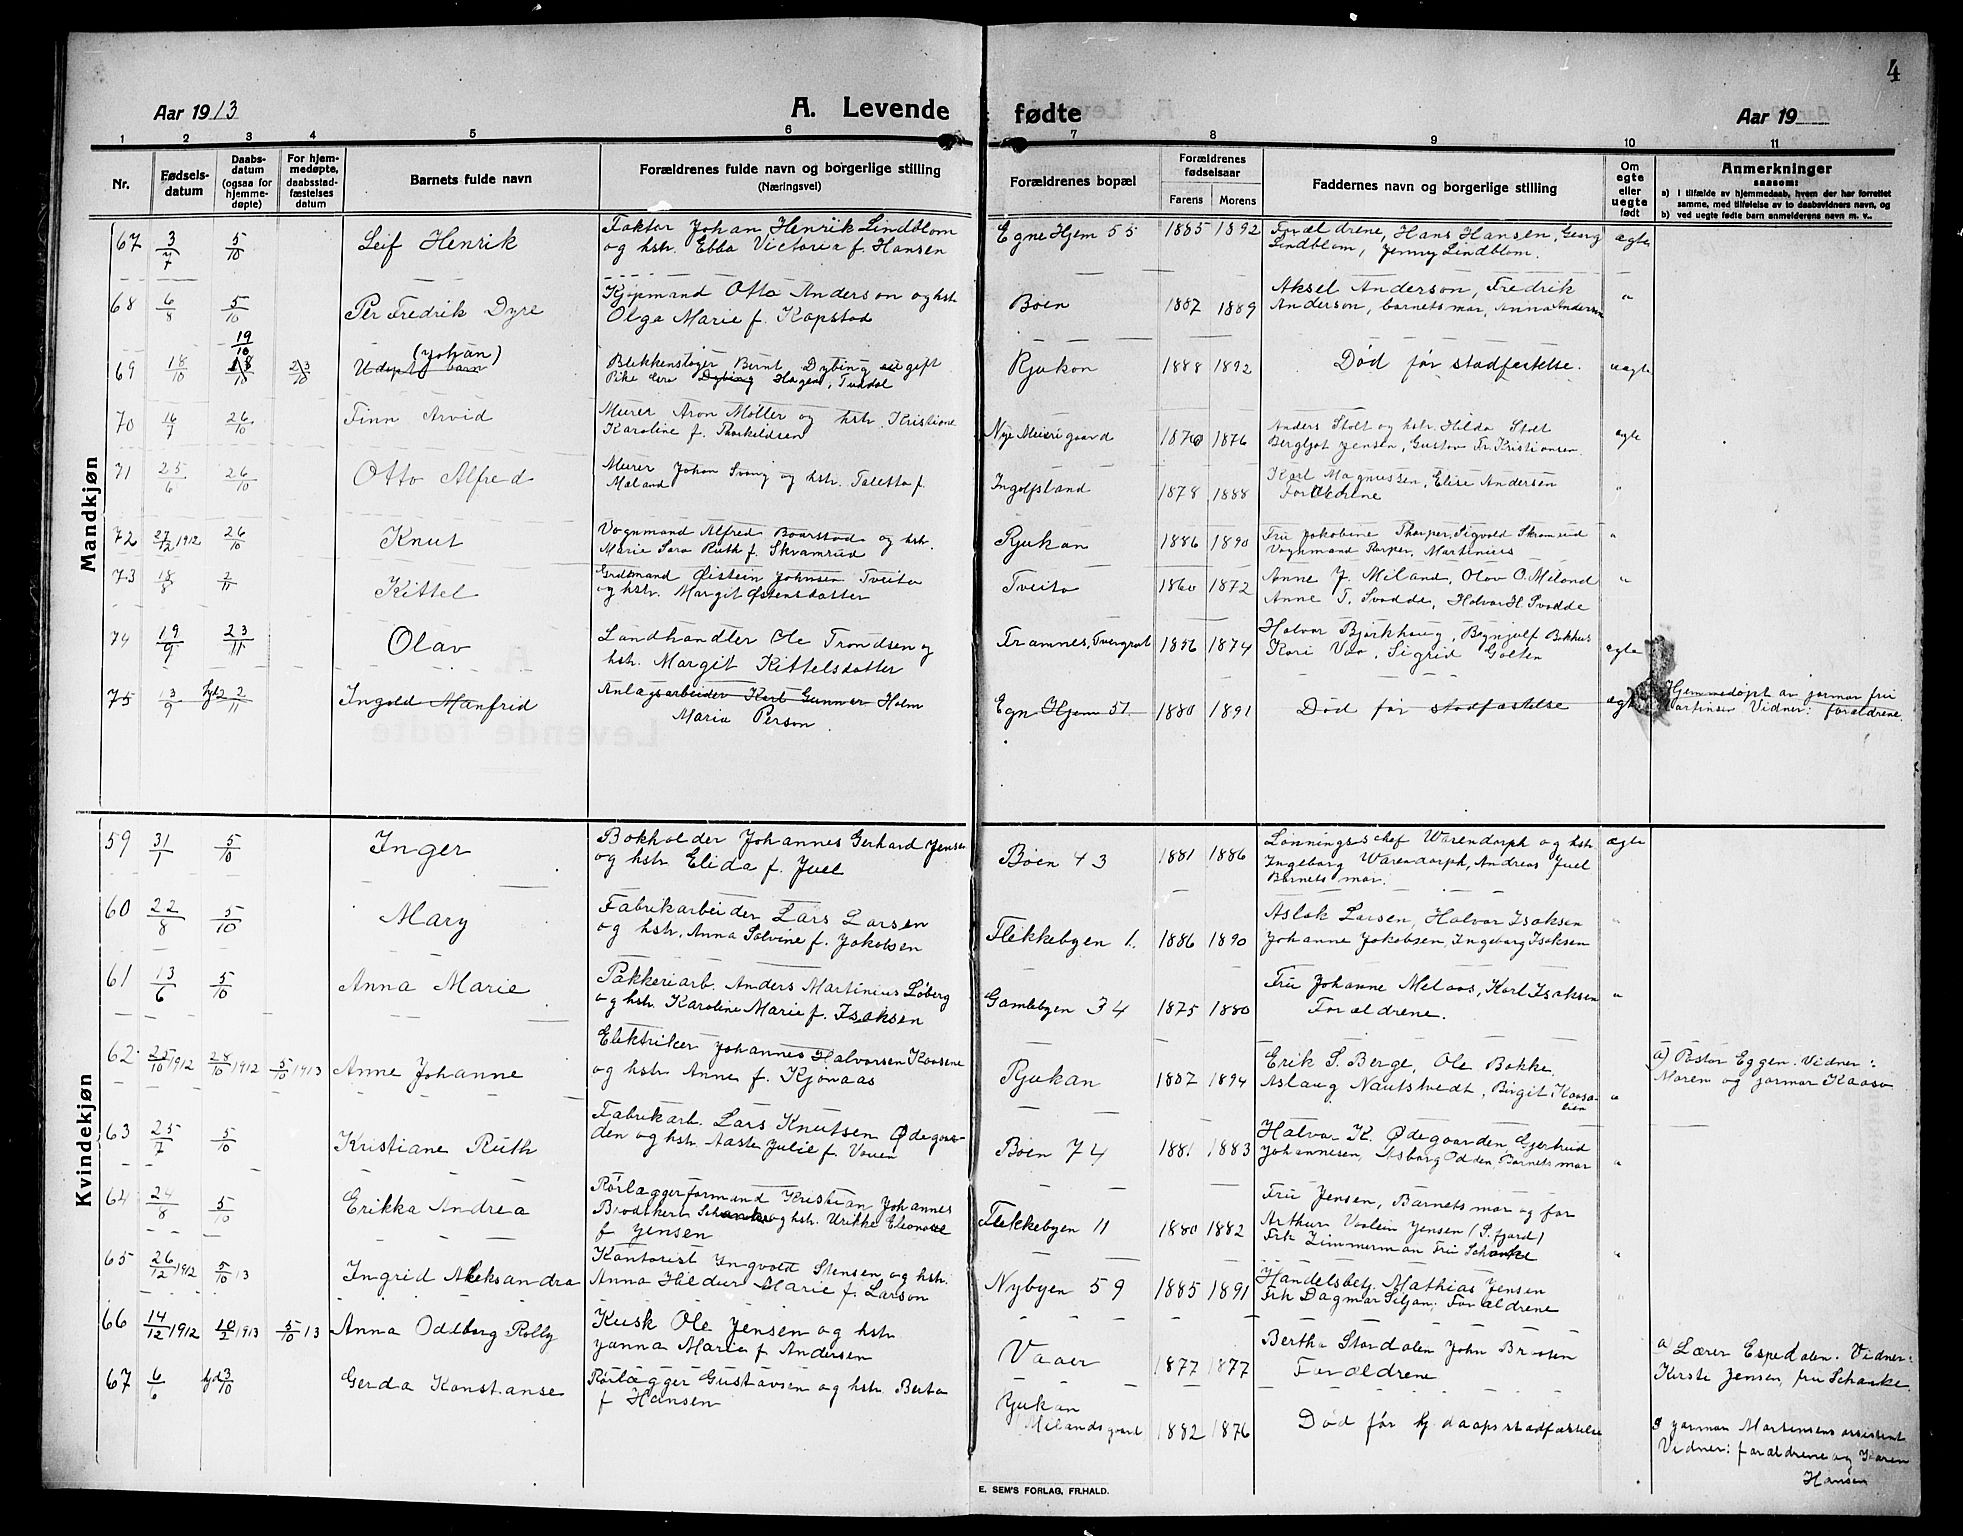 4
Aar 1913 A. Levende fødte Aar 19
1 2 3 4 5 6 7 8 9 10 11
Nr. Fødselsdatum Daabsdatum (ogsaa for hjemmedøpte) For hjemmedøpte, daabsstadfæstelses datum Barnets fulde navn Forældrenes fulde navn og borgerlige stilling (Næringsvei) Forældrenes bopæl Forældrenes fødselsaar Farens Morens Faddernes navn og borgerlige stilling Om egte eller uegte født Anmerkninger saasom:
a) I tilfælde av hjemmedaab, hvem der har forrettet samme, med tilføielse av to daabsvidners navn, og
b) ved uegte fødte barn anmelderens navn m. v..
Mandkjøn
67 3/7 5/10 Leif Henrik Faktor Johan Henrik Lindblom Egne Hjem 55 1885 1892 Forældrene, Hans Hansen, Georg ægte
og hstr. Ebba Victoria f. Hansen Lindblom, Jenny Lindblom.
68 6/8 5/10 Per Fredrik Dyre Kjøpmand Otto Anderson og hstr. Bøen 1887 1889 Aksel Anderson, Fredrik "
Olga Marie f. Kopstad Anderson, barnets mor, Anna Anderson
69 18/10 19/10 18/10 23/10 (Johan) Udøpt barn Blikkenslager Bernt Dybing ugift Rjukan 1888 1892 Død før stadfestelse. uægte
Pike Dybing Hagen, Tuddal
70 16/7 26/10 Finn Arvid Murer Aron Møller og hstr. Kristiane Nye Meierigaard 1870 1876 Anders Stolt og hstr. Hilda Stolt ægte
Karoline f. Thorkildsen Bergljot Jensen, Gustav Fr. Kristiansen.
71 25/6 26/10 Otto Alfred Murer Johan Svang og hstr. Taletta f. Ingolfsland 1878 1888 Karl Magnussen, Elise Andersen "
Mæland Forældrene
72 27/12 1912 26/10 Knut Vognmand Alfred Baarstad og hstr. Rjukan 1886 1890 Fru Jakobine Thorper, Sigvold Skramrud "
Marie Sara Ruth f. Skramrud Vognmand Martinius
73 18/8 2/11 Kittel Grdmand Øistein Johnsen Tveito Tveito 1860 1872 Anne J. Miland, Olav O. Miland "
og hstr. Margit Østensdatter Anne T. Svadde, Halvor H. Svadde
74 19/9 23/11 Olav Landhandler Ole Trondsen og Framnes, 1856 1874 Halvor Bjørkhaug, Bøkkus ægte
hstr. Margit Kittelsdatter Kari Vaa, Sigrid
75 13/9 22/11 Ingold Manfrid Anlagsarbeider Karl Gunner Holm Egne Hjem 51. 1880 1891 Død før stadfæstelse ægte Hjemmedøpt av jormor fru
Maria Person Martinsen Vidner: forældrene.
Kvindekjøn
59 31/1 5/10 Inger Bokholder Johannes Gerhard Jensen Bøen 43 1881 1886 Lønningschef Warendorph og hstr. ægte
og hstr. Elida f. Juel Ingeborg Warendorph, Andreas Juel
Barnets mor.
60 22/8 5/10 Mary Fabrikarbeider Lars Larsen Flekkebyen 1. 1886 1890 Aslak Larsen, Halvor Isaksen "
og hstr. Anna Solvine f. Jakobsen Johanne Jakobsen, Ingeborg Isaksen
61 13/6 5/10 Anna Marie Pakkeriarb. Anders Martinius Løberg Gamlebyen 34 1875 1880 Fru Johanne Melaas, Karl Isaksen "
og hstr. Karoline Marie f. Isaksen Forældrene.
62 25/10 1912 28/10 1912 5/10 1913 Anne Johanne Elektriker Johannes Halvorsen Kaasene Rjukan 1887 1894 Erik S. Berge, Ole Bakke " a) Pastor Eggen. Vidner:
og hstr. Anne f. Kjønaas Aslaug Nautstvedt, Birgit Kaasa- Moren og jormor Kaasa
63 25/7 5/10 Kristiane Ruth Fabrikarb. Lars Knutsen Ødegaar- Bøen 74 1881 1883 Halvor K. Ødegaarden, Gjertrud "
den og hstr. Aaste Julie f. Johannesen, Asborg Odden, Barnets mor
64 24/8 5/10 Erikka Andrea Rørlæggerformand Kristian Johannes Flekkebyen 11 1880 1882 Fru Jensen, Barnets mor og far
Schanke og hstr. Urikke Eleonore Arthur Jensen (S. fjord)
f. Jensen Frk Zimmerman Fru Schanke "
65 26/12 1912 5/10 13 Ingrid Aleksandra Kontorist Ingvold Stensen og hstr. Nybyen 59 1885 1891 Handelsbetj. Mathias Jensen
Anna Hildur Marie f. Larson Frk Dagmar Siljan, Forældrene "
66 14/12 1912 10/2 1913 5/10 13 Anna Oddborg Rolly Kusk Ole Jensen og hstr. Vaaer 1877 1877 Bertha Stordalen John Braaten a) Lærer Espedalen. Vidner:
Janna Marie f. Andersen Forældrene Kirste Jensen, fru Schanke.
67 6/6 3/10 Gerda Konstanse Rørlægger Gustavsen og hstr. Berta Rjukan Milandsgaard 1882 1876 Død før hj. daapsstadfæstelse jormor Martensens assistent
f Hansen Vidner: forældrene og Karen
Hansen
E. SEM'S FORLAG, FR.HALD.